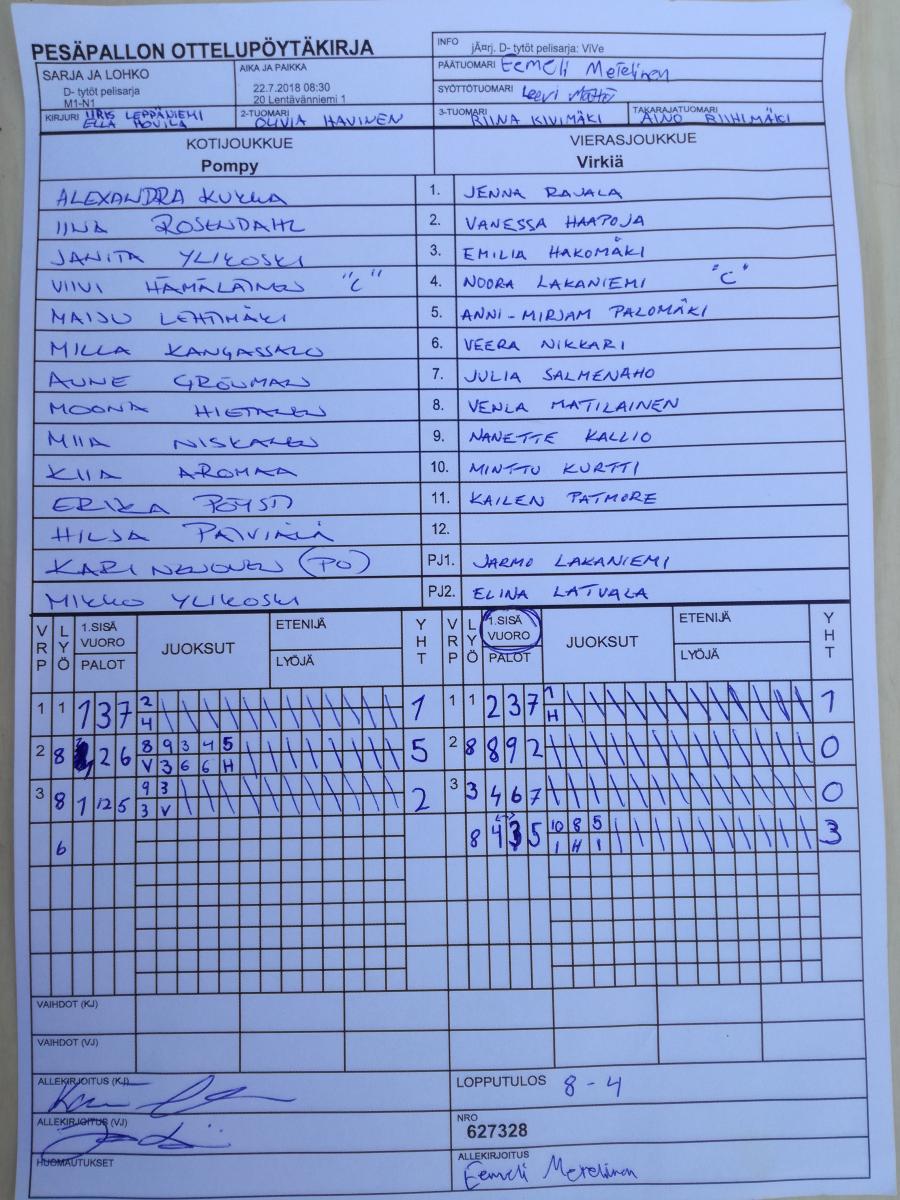 PESÄPALLON OTTELUPÖYTÄKIRJA
INFO
jÄ¤rj. D- tytöt pelisarja: ViVe
SARJA JA LOHKO
D- tytöt pelisarja
M1-N1
AIKA JA PAIKKA
22.7.2018 08:30
20 Lentävänniemi 1
PÄÄTUOMARI Eemeli Metelinen
SYÖTTÖTUOMARI Leevi
KIRJURI IIRIS LEPPÄNIEMI
ELLA HOVILA
2-TUOMARI OLIVIA HAVINEN
3-TUOMARI RIINA KIVIMÄKI
TAKARAJATUOMARI AINO RIIHIMÄKI
KOTIJOUKKUE
Pompy
VIERASJOUKKUE
Virkiä
ALEXANDRA KUKKA 1. JENNA RAJALA
IINA ROSENDAHL 2. VANESSA HAAPOJA
JANITA YLIKOSKI 3. EMILIA HAKOMÄKI
VIIVI HÄMÄLÄINEN "C" 4. NOORA LAKANIEMI "C"
MAIJU LEHTIMÄKI 5. ANNI-MIRJAM PALOMÄKI
MILLA KANGASSALO 6. VEERA NIKKARI
AUNE GRÖNMAN 7. JULIA SALMENAHO
MOONA HIETANEN 8. VENLA MATILAINEN
MIIA NISKANEN 9. NANETTE KALLIO
KIIA AROMAA 10. MINTTU KURTTI
ERIKA PÖYSTI 11. KAILEN PATMORE
HILJA PÄIVIÄLÄ 12.
KARI NEVONEN (PJ) PJ1. JARMO LAKANIEMI
MIKKO YLIKOSKI PJ2. ELINA LATVALA
VRP LYÖ 1.SISÄ VUORO PALOT JUOKSUT ETENIJÄ LYÖJÄ YHT VRP LYÖ 1.SISÄ VUORO PALOT JUOKSUT ETENIJÄ LYÖJÄ YHT
1 1 1 3 7 2 1 1 1 2 3 7 1 1
4 H
2 8 1 2 6 8 9 3 4 5 5 2 8 8 9 2 0
V 3 6 6 H
3 8 1 12 5 9 3 2 3 3 4 6 7 0
3 V
6 8 4 3 5 10 8 5 3
1 H 1
VAIHDOT (KJ)
VAIHDOT (VJ)
ALLEKIRJOITUS (KJ)
LOPPUTULOS 8 - 4
ALLEKIRJOITUS (VJ)
NRO
627328
HUOMAUTUKSET
ALLEKIRJOITUS
Eemeli Metelinen